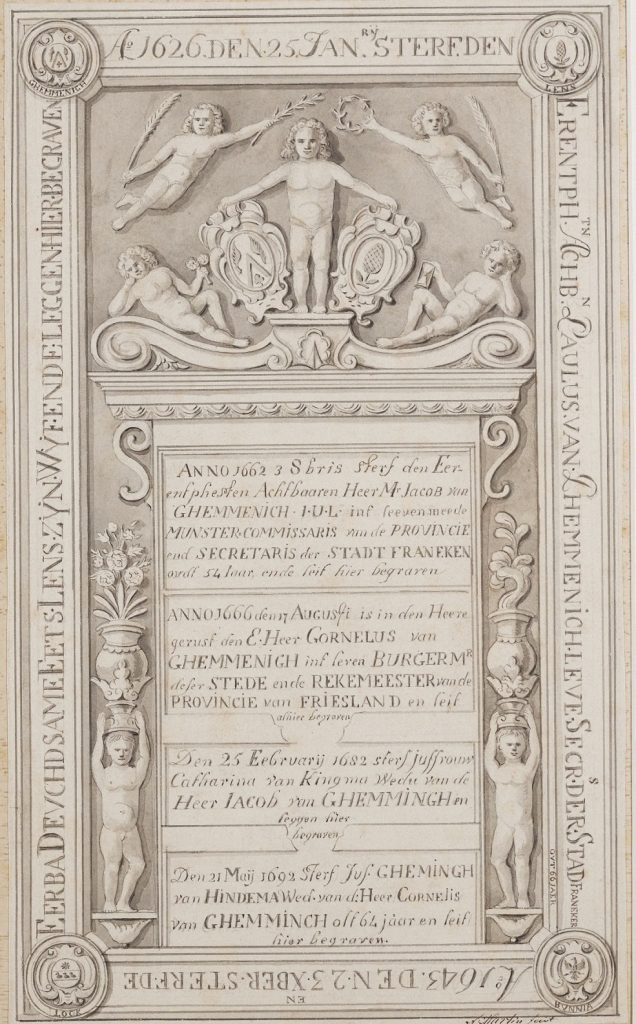 Ao 1626. DEN. 25. JAN.RIJ STERF.DEN
GHEMMENICH
LENS
ERENTPH.TN ACHB.N PAULUS. VAN. GHEMMENICH. LEVE. SECR.S DER. STAD FRANEKER
OVT. 66 JAER
BUNNIA
Ao 1643. DEN. 23. XBER. STERF. DE
EN
LOCK
EERBA DEVCHDSAME EETS. LENS. ZYN. WYF. ENDE. LEGGEN. HIER. BEGRAVEN
ANNO 1662 3 8bris sterf den Eer-
entphesten Achtbaaren Heer Mr JACOB van
GHEMMENICH . I . U . L . int leeven meede
MUNSTER-COMMISSARIS van de PROVINCIE
end SECRETARIS der STADT FRANEKEN
oudt 54 Iaar, ende leit hier begraven
ANNO 1666 den 17 AUGUSti is in den Heere
gerust den E. Heer CORNELUS van
GHEMMENIGH int leven BURGERMR
deser STEDE ende REKEMEESTER van de
PROVINCIE van FRIESLAND en leit
alhier begraven
Den 25 Eebruarij 1682 sterf juffrouw
Catharina van Kingma Wedu van de
Heer IACOB van GHEMMINGH en
leggen hier
begraven
Den 21 Maij 1692 Sterf Juf. GHEMINGH
van HINDEMA Wed. van d. Heer CORNELIS
van GHEMMINCH olt 64 jaar en leit
hier begraven.
A. Martin fecit